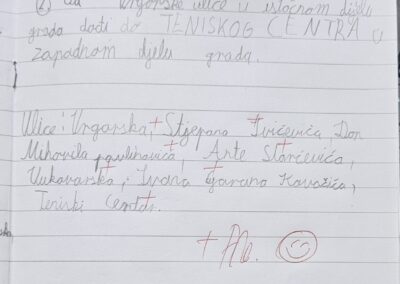 ② Od Vrgorske ulice u istočnom dijelu
grada dođi do TENISKOG CENTRA u
zapadnom djelu grada.
Ulice: Vrgorska, Stjepana Ivićevića, Don
Mihovila Pavlinovića, Ante Starčevića,
Vukovarska, Ivana Gorana Kovačića,
Teniski centar.